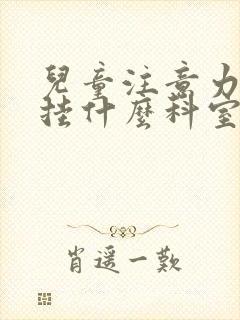 兒童注意力
挂什麼科室
肖遥一歎